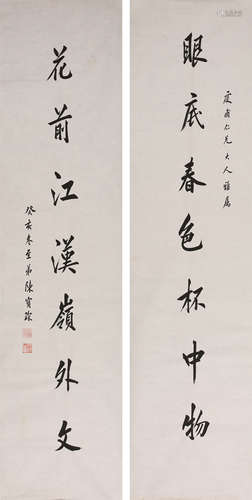 眼底春色杯中物
仁兄大人雅属
花前江漢嶺外文
癸亥冬至弟陳寶琛